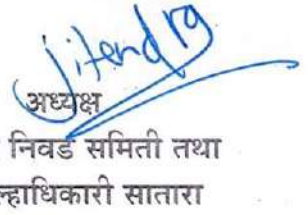 Jitendra
अध्यक्ष
निवड समिती तथा
ल्हाधिकारी सातारा